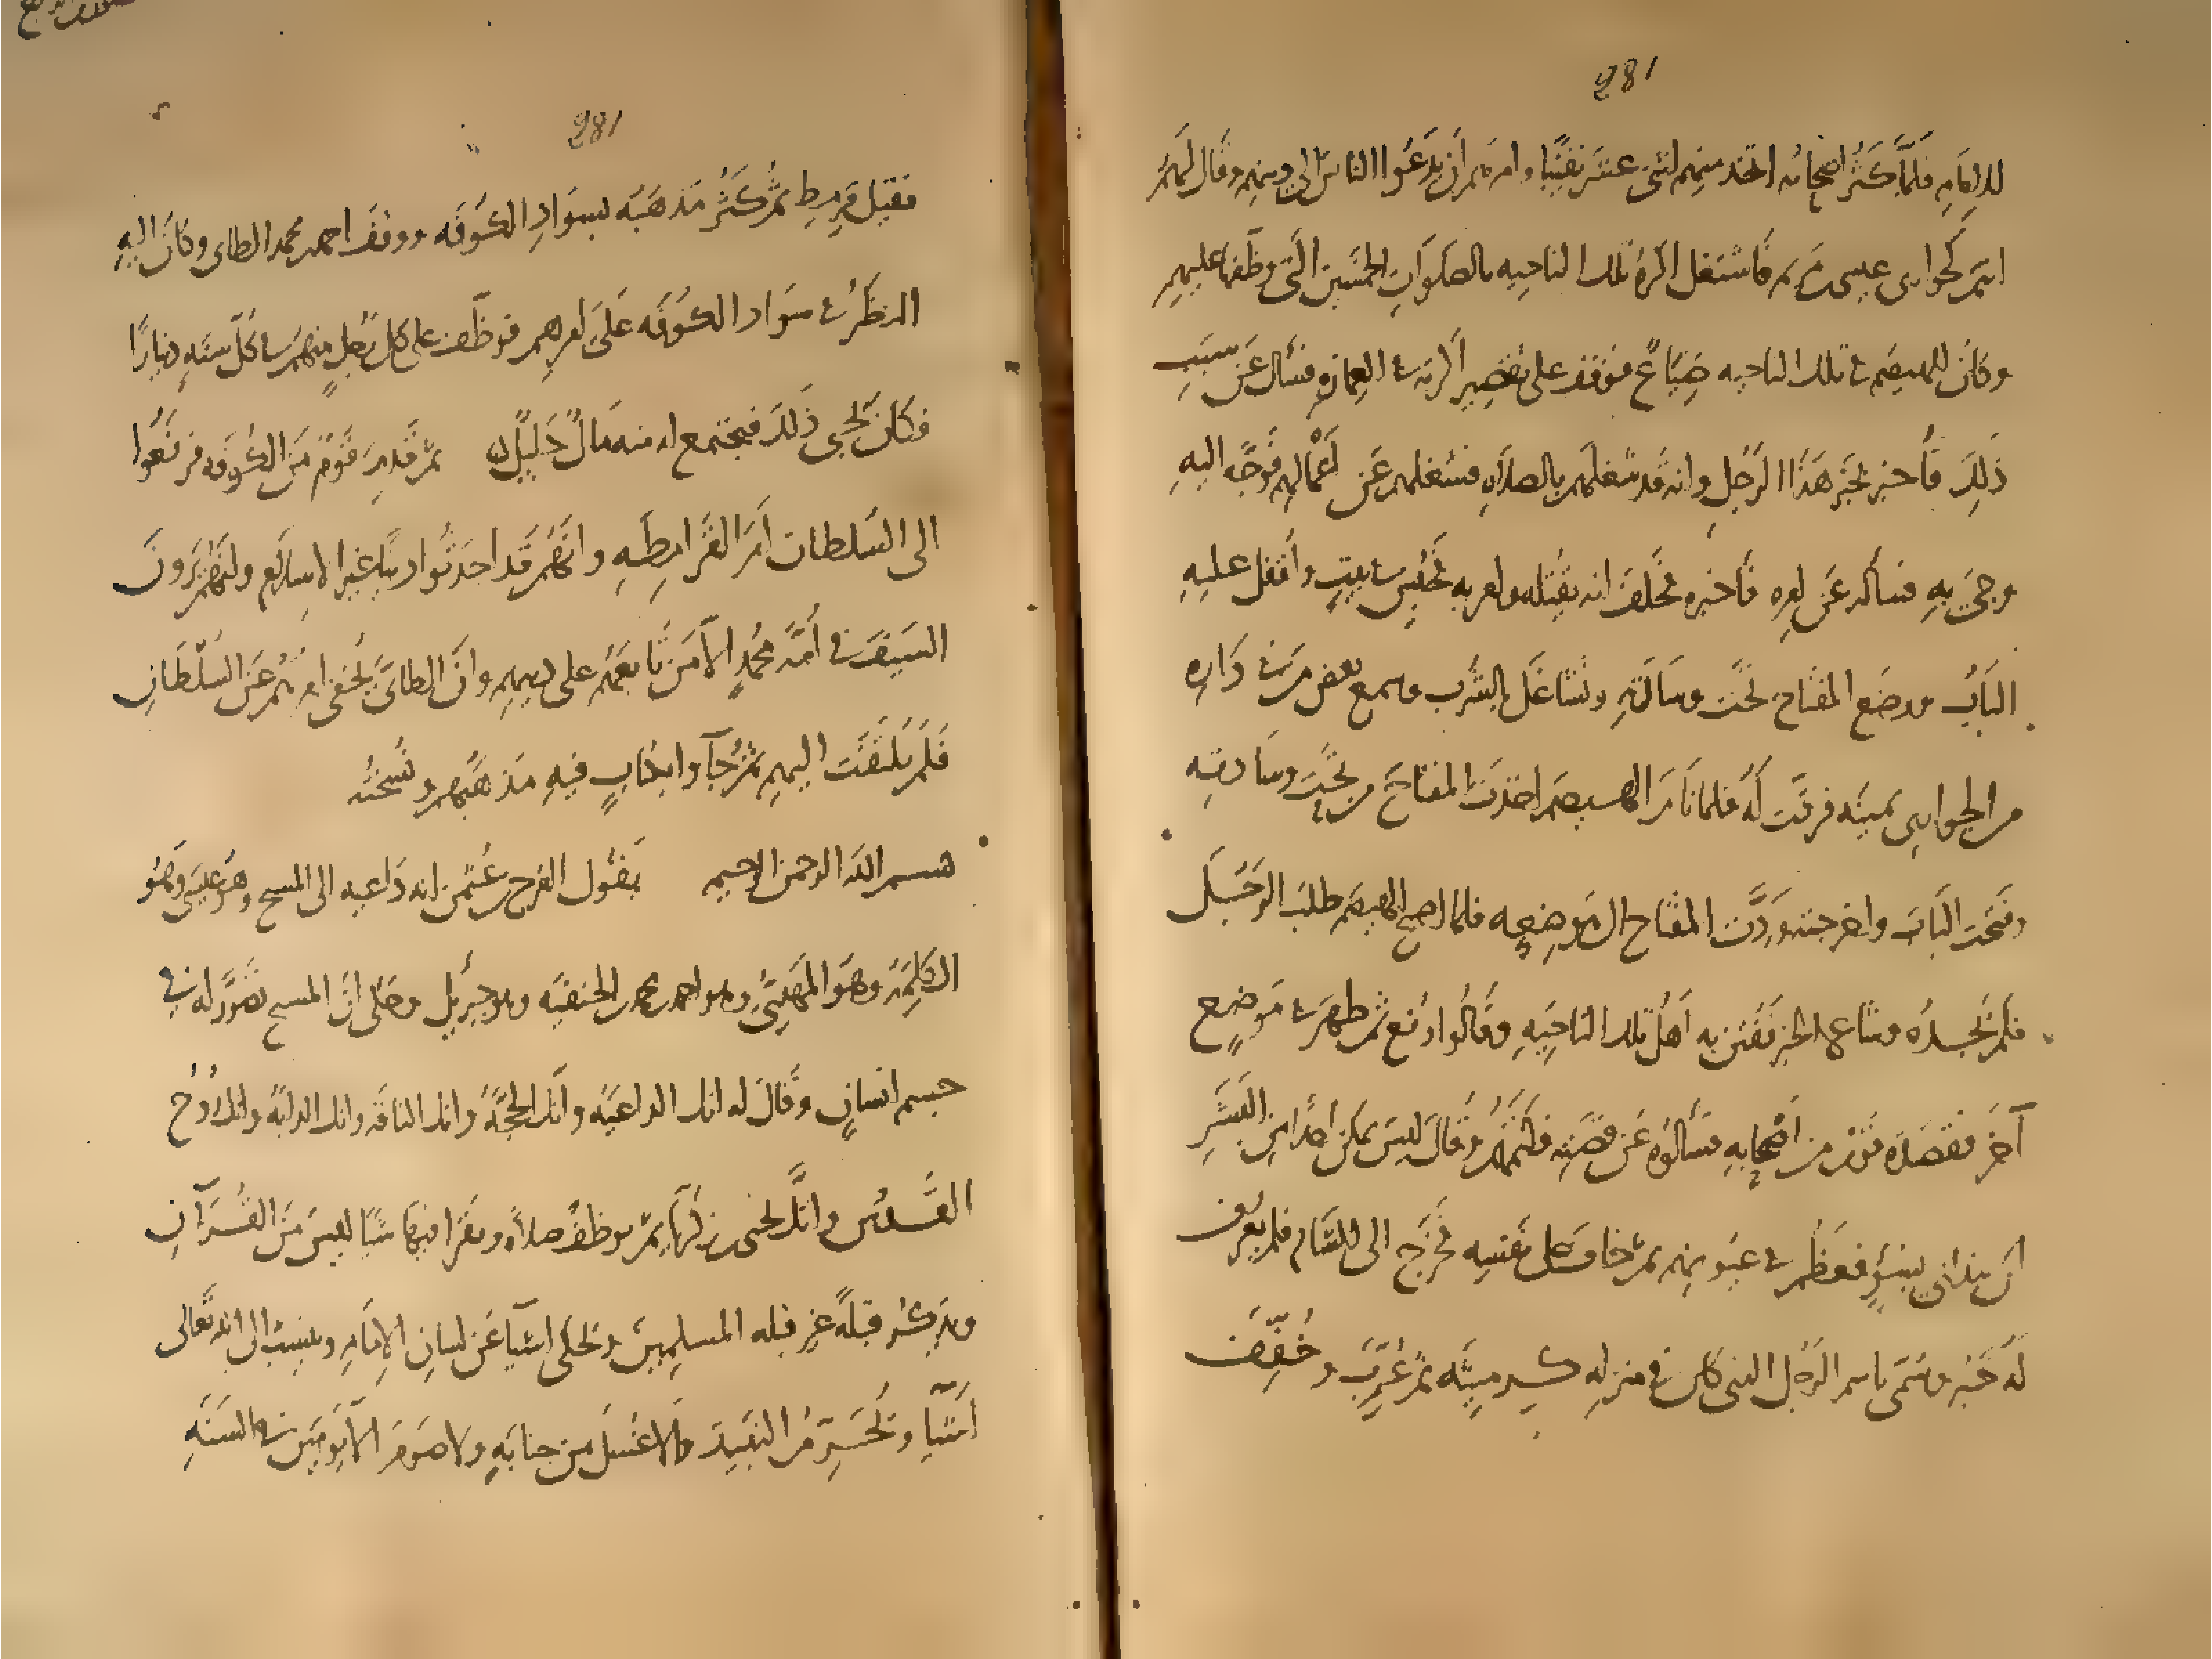 281
للامام فلما كثر اصحابه اتخذ منهم اثنى عشر نقيبا وامرهم أن يدعوا الناس الى دينهم وقال لهم
انتم كحوارى عيسى بن مريم فاشتغل اكرة تلك الناحيه بالصلوات الخمسين التى وظفها عليهم
وكان للهيصم فى تلك الناحيه ضياع فوقف على تقصير أكرته فى العماره فسأل عن سبب
ذلك فأخبر بخبر هذا الرجل وانه قد شغلهم بالصلاه فشغلهم عن أعمالهم فوجه اليه
وجئ به فسأله عن امره فأخبره فحلف انه يقتله وامر به فحبس فى بيت وأقفل عليه
الباب ووضع المفتاح تحت وسادته وتشاغل بالشرب وسمع بعض من فى داره
من الجوارى يمينه فرقت له فلما نام الهيصم اخذت المفتاح من تحت وسادته
وفتحت الباب واخرجته وردت المفتاح الى موضعه فلما اصبح الهيصم طلب الرجل
فلم يجده وشاع الخبر ففتن به أهل تلك الناحيه وقالوا رفع ثم ظهر فى موضع
آخر فقصده قوم من اصحابه فسألوه عن قصته فكتمهم وقال ليس يمكن احدا من البشر
أن ينالنى بسؤ فعظم فى عيونهم ثم خاف على نفسه فخرج الى الشام فلم يعرف
له خبر وسمى باسم الرجل الذى كان فى منزله كرميته ثم عرب وخفف
281
فقيل قرمط ثم كثر مذهبه بسواد الكوفه ووقف احمد بن محمد الطاى وكان اليه
النظر فى سواد الكوفه على امرهم فوظف على كل رجل منهم فى كل سنه دينارا
فكان يجبى ذلك فيجتمع له منه مال جليل ثم قدم قوم من الكوفه فرفعوا
الى السلطان امر القرامطه وانهم قد احدثوا دينا غير الاسلام وانهم يرون
السيف فى أمة محمد الا من تابعهم على دينهم وان الطائى يخفى امرهم عن السلطان
فلم يلتفت اليهم ثم جاؤا بكتاب فيه مذهبهم ونسخته
بسم الله الرحمن الرحيم يقول الفرج بن عثمن انه داعيه الى المسيح وهو عيسى وهو
الكلمة وهو المهدى وهو احمد بن محمد بن الحنفيه وهو جبريل وحكى ان المسيح تصور له فى
جسم انسان وقال له انك الداعيه وانك الحجة وانك الناقه وانك الدابه وانك روح
القدس وانك يحيى بن زكريا ثم يوظف صلاة ويقرا فيها شيا ليس من القرآن
ويذكر قبلة غير قبله المسلمين ويحكى اشيآ عن لسان الامام وينسب الى الله تعالى
اشيآ ويحرم النبيذ ولا غسل من جنابه ولا صوم الا يومين فى السنه